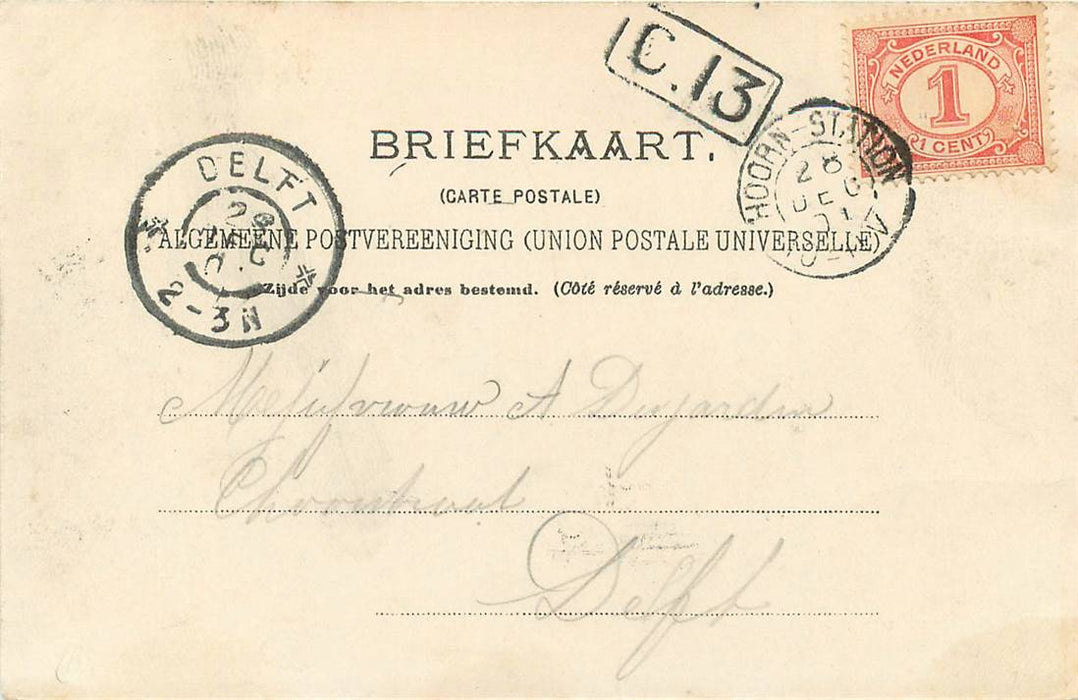 C.13
NEDERLAND
1
1 CENT
HOORN-STATION
28
DEC
01
BRIEFKAART.
(CARTE POSTALE)
ALGEMEENE POSTVEREENIGING (UNION POSTALE UNIVERSELLE)
Zijde voor het adres bestemd. (Côté réservé à l'adresse.)
DELFT
28
DEC
2-3N
Mejufvrouw A Dujardin
Choorstraat
Delft